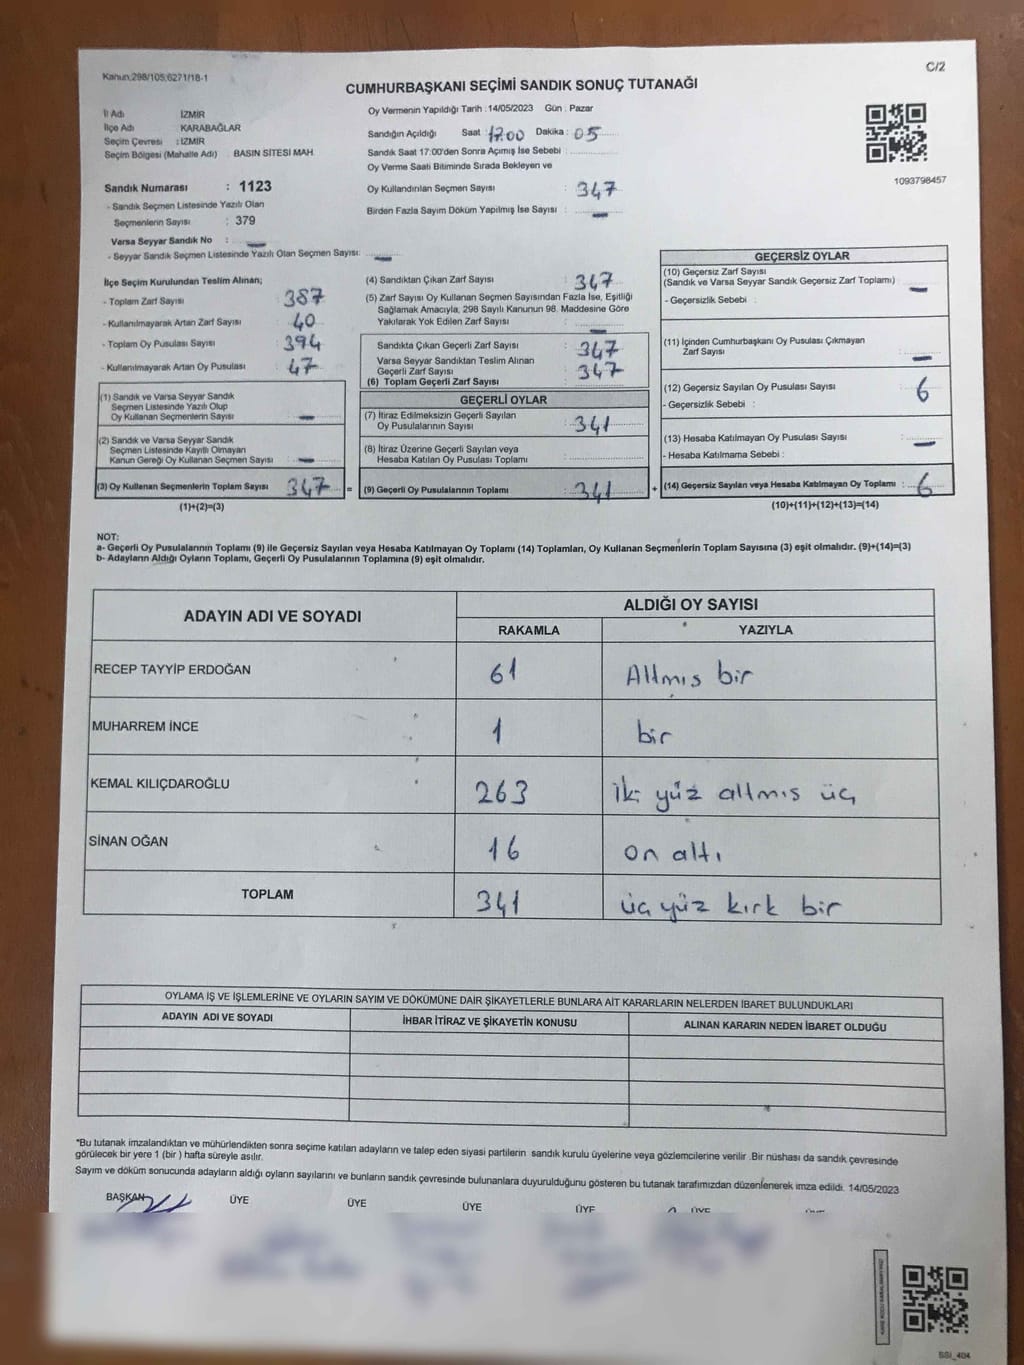 Kanun:298/105;6271/18-1
C/2
CUMHURBAŞKANI SEÇİMİ SANDIK SONUÇ TUTANAĞI
İl Adı İZMİR
İlçe Adı KARABAĞLAR
Seçim Çevresi : İZMİR
Seçim Bölgesi (Mahalle Adı) : BASIN SİTESİ MAH.
Oy Vermenin Yapıldığı Tarih :14/05/2023 Gün : Pazar
Sandığın Açıldığı Saat : 17.00 Dakika : 05
Sandık Saat 17:00'den Sonra Açımış İse Sebebi :
Oy Verme Saati Bitiminde Sırada Bekleyen ve
Oy Kullandırılan Seçmen Sayısı : 347
Birden Fazla Sayım Döküm Yapılmış İse Sayısı : –
1093798457
Sandık Numarası : 1123
- Sandık Seçmen Listesinde Yazılı Olan
Seçmenlerin Sayısı : 379
Varsa Seyyar Sandık No : –
- Seyyar Sandık Seçmen Listesinde Yazılı Olan Seçmen Sayısı: –
İlçe Seçim Kurulundan Teslim Alınan;
- Toplam Zarf Sayısı : 387
- Kullanılmayarak Artan Zarf Sayısı : 40
- Toplam Oy Pusulası Sayısı : 394
- Kullanılmayarak Artan Oy Pusulası : 47
(1) Sandık ve Varsa Seyyar Sandık
Seçmen Listesinde Yazılı Olup
Oy Kullanan Seçmenlerin Sayısı : –
(2) Sandık ve Varsa Seyyar Sandık
Seçmen Listesinde Kayıtlı Olmayan
Kanun Gereği Oy Kullanan Seçmen Sayısı : –
(3) Oy Kullanan Seçmenlerin Toplam Sayısı : 347 =
(1)+(2)=(3)
(4) Sandıktan Çıkan Zarf Sayısı : 347
(5) Zarf Sayısı Oy Kullanan Seçmen Sayısından Fazla İse, Eşitliği
Sağlamak Amacıyla, 298 Sayılı Kanunun 98. Maddesine Göre
Yakılarak Yok Edilen Zarf Sayısı : –
Sandıkta Çıkan Geçerli Zarf Sayısı : 347
Varsa Seyyar Sandıktan Teslim Alınan
Geçerli Zarf Sayısı : 347
(6) Toplam Geçerli Zarf Sayısı :
GEÇERLİ OYLAR
(7) İtiraz Edilmeksizin Geçerli Sayılan
Oy Pusulalarının Sayısı : 341
(8) İtiraz Üzerine Geçerli Sayılan veya
Hesaba Katılan Oy Pusulası Toplamı :
(9) Geçerli Oy Pusulalarının Toplamı : 341 +
GEÇERSİZ OYLAR
(10) Geçersiz Zarf Sayısı
(Sandık ve Varsa Seyyar Sandık Geçersiz Zarf Toplamı) : –
- Geçersizlik Sebebi :
(11) İçinden Cumhurbaşkanı Oy Pusulası Çıkmayan
Zarf Sayısı : –
(12) Geçersiz Sayılan Oy Pusulası Sayısı : 6
- Geçersizlik Sebebi :
(13) Hesaba Katılmayan Oy Pusulası Sayısı : –
- Hesaba Katılmama Sebebi :
(14) Geçersiz Sayılan veya Hesaba Katılmayan Oy Toplamı : 6
(10)+(11)+(12)+(13)=(14)
NOT:
a- Geçerli Oy Pusulalarının Toplamı (9) ile Geçersiz Sayılan veya Hesaba Katılmayan Oy Toplamı (14) Toplamları, Oy Kullanan Seçmenlerin Toplam Sayısına (3) eşit olmalıdır. (9)+(14)=(3)
b- Adayların Aldığı Oyların Toplamı, Geçerli Oy Pusulalarının Toplamına (9) eşit olmalıdır.
ADAYIN ADI VE SOYADI ALDIĞI OY SAYISI
RAKAMLA YAZIYLA
RECEP TAYYİP ERDOĞAN 61 Altmıs bir
MUHARREM İNCE 1 bir
KEMAL KILIÇDAROĞLU 263 iki yüz altmıs üç
SİNAN OĞAN 16 on altı
TOPLAM 341 üç yüz kırk bir
OYLAMA İŞ VE İŞLEMLERİNE VE OYLARIN SAYIM VE DÖKÜMÜNE DAİR ŞİKAYETLERLE BUNLARA AİT KARARLARIN NELERDEN İBARET BULUNDUKLARI
ADAYIN ADI VE SOYADI İHBAR İTİRAZ VE ŞİKAYETİN KONUSU ALINAN KARARIN NEDEN İBARET OLDUĞU
*Bu tutanak imzalandıktan ve mühürlendikten sonra seçime katılan adayların ve talep eden siyasi partilerin sandık kurulu üyelerine veya gözlemcilerine verilir .Bir nüshası da sandık çevresinde
görülecek bir yere 1 (bir ) hafta süreyle asılır.
Sayım ve döküm sonucunda adayların aldığı oyların sayılarını ve bunların sandık çevresinde bulunanlara duyurulduğunu gösteren bu tutanak tarafımızdan düzenlenerek imza edildi. 14/05/2023
BAŞKAN ÜYE ÜYE ÜYE ÜYE ÜYE
SSI_404